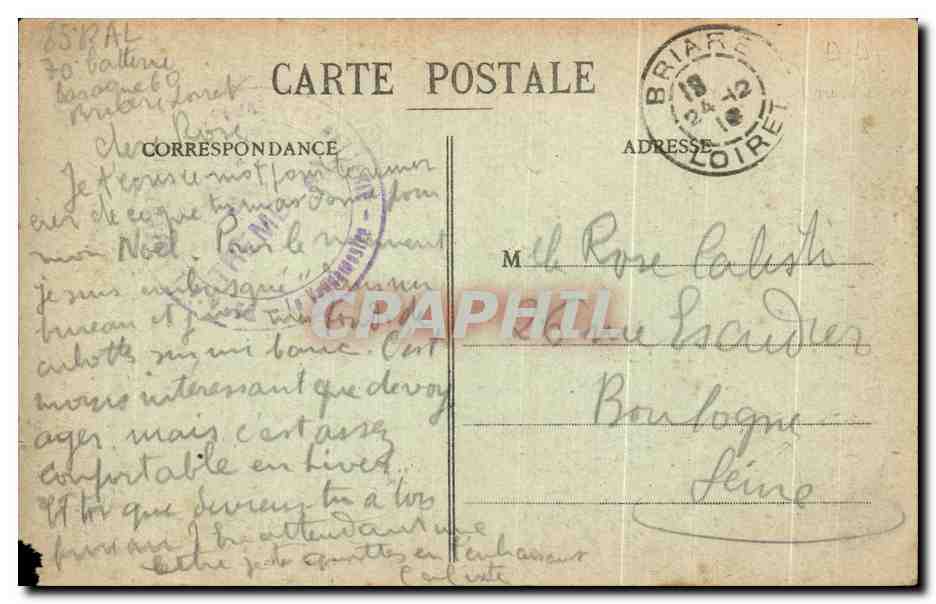 85 RAL
70 batterie
baraque 6
Briare Loiret
CARTE POSTALE
BRIARE
18
24 -12
LOIRET
CORRESPONDANCE
ADRESSE
cher Rose
Je t'écris ce mot pour te
de ce que tu m'as donné pour
mon Noël. Pour le moment
je suis embusqué dans un
bureau et j'use mes fonds de
culottes sur un banc. C'est
moins intéressant que de voy
ager mais c'est assez
confortable en hiver.
Et toi que deviens tu à ton
bureau ? En attendant une
lettre je te quitte en t'embrassant
Calixte
Melle Rose Calisti
26 rue Escudier
Boulogne
Seine
Le Vaguemestre
CPAPHIL